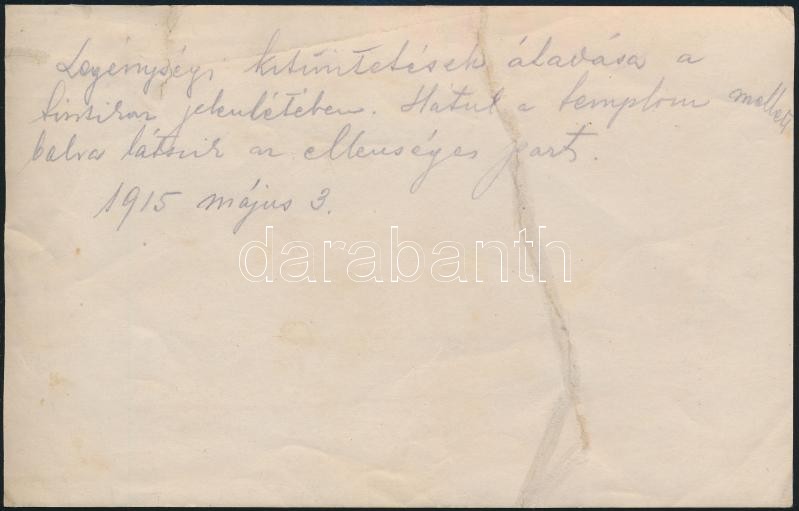 Legénységi kitüntetések átadása a
tisztikar jelenlétében. Hátul a templom mellett
balra látszik az ellenséges part.
1915 május 3.
darabanth